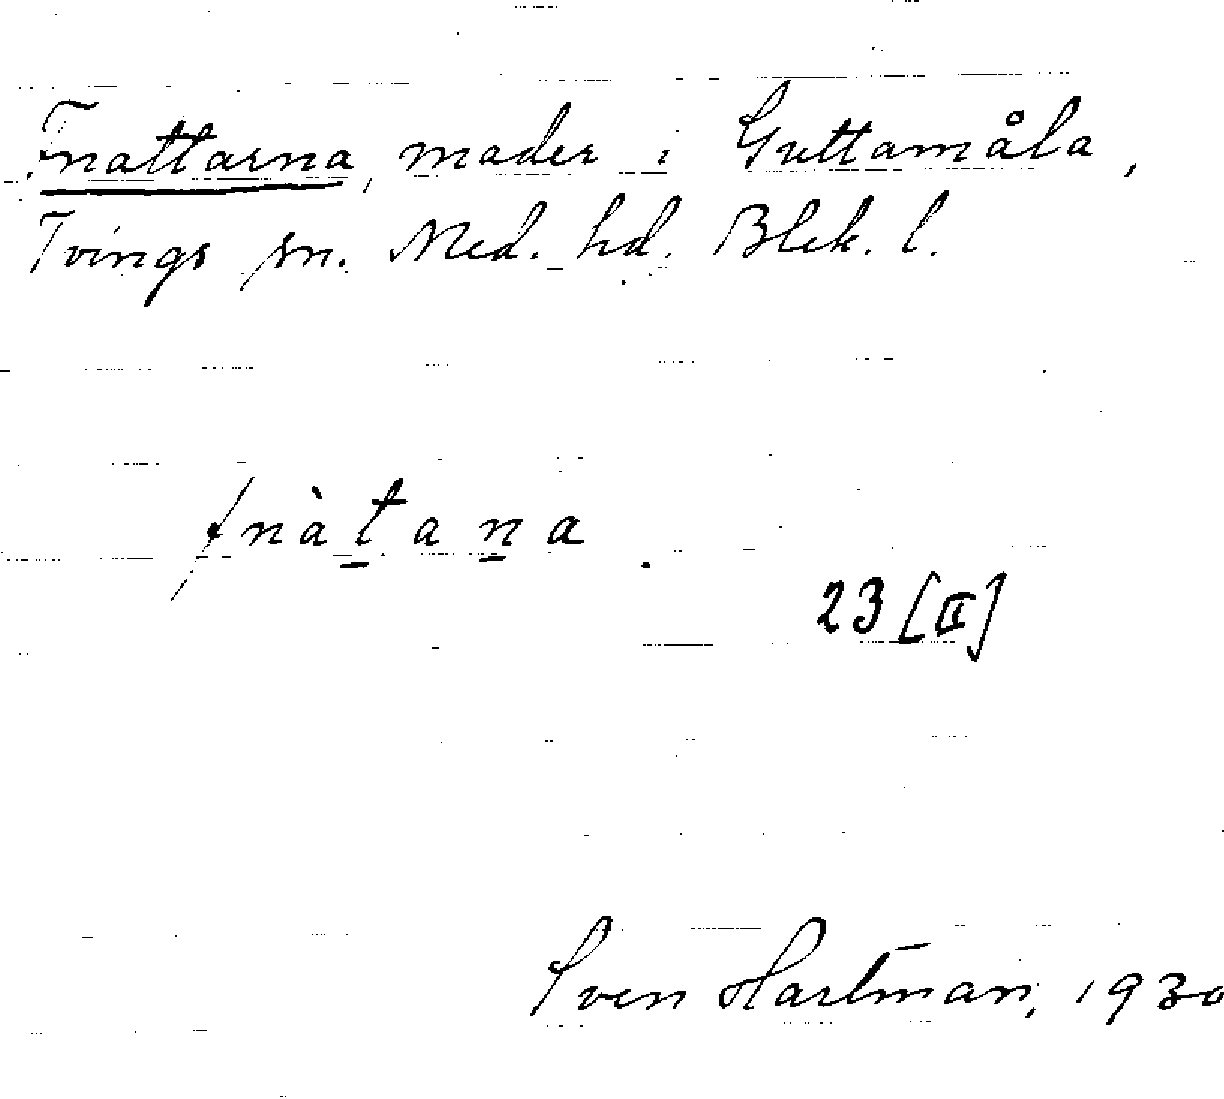 Fnattarna, mader i Guttamåla,
Tvings sn. Med. hd. Blek. l.
fnàtana.
23 [II]
Sven Hartman, 1930